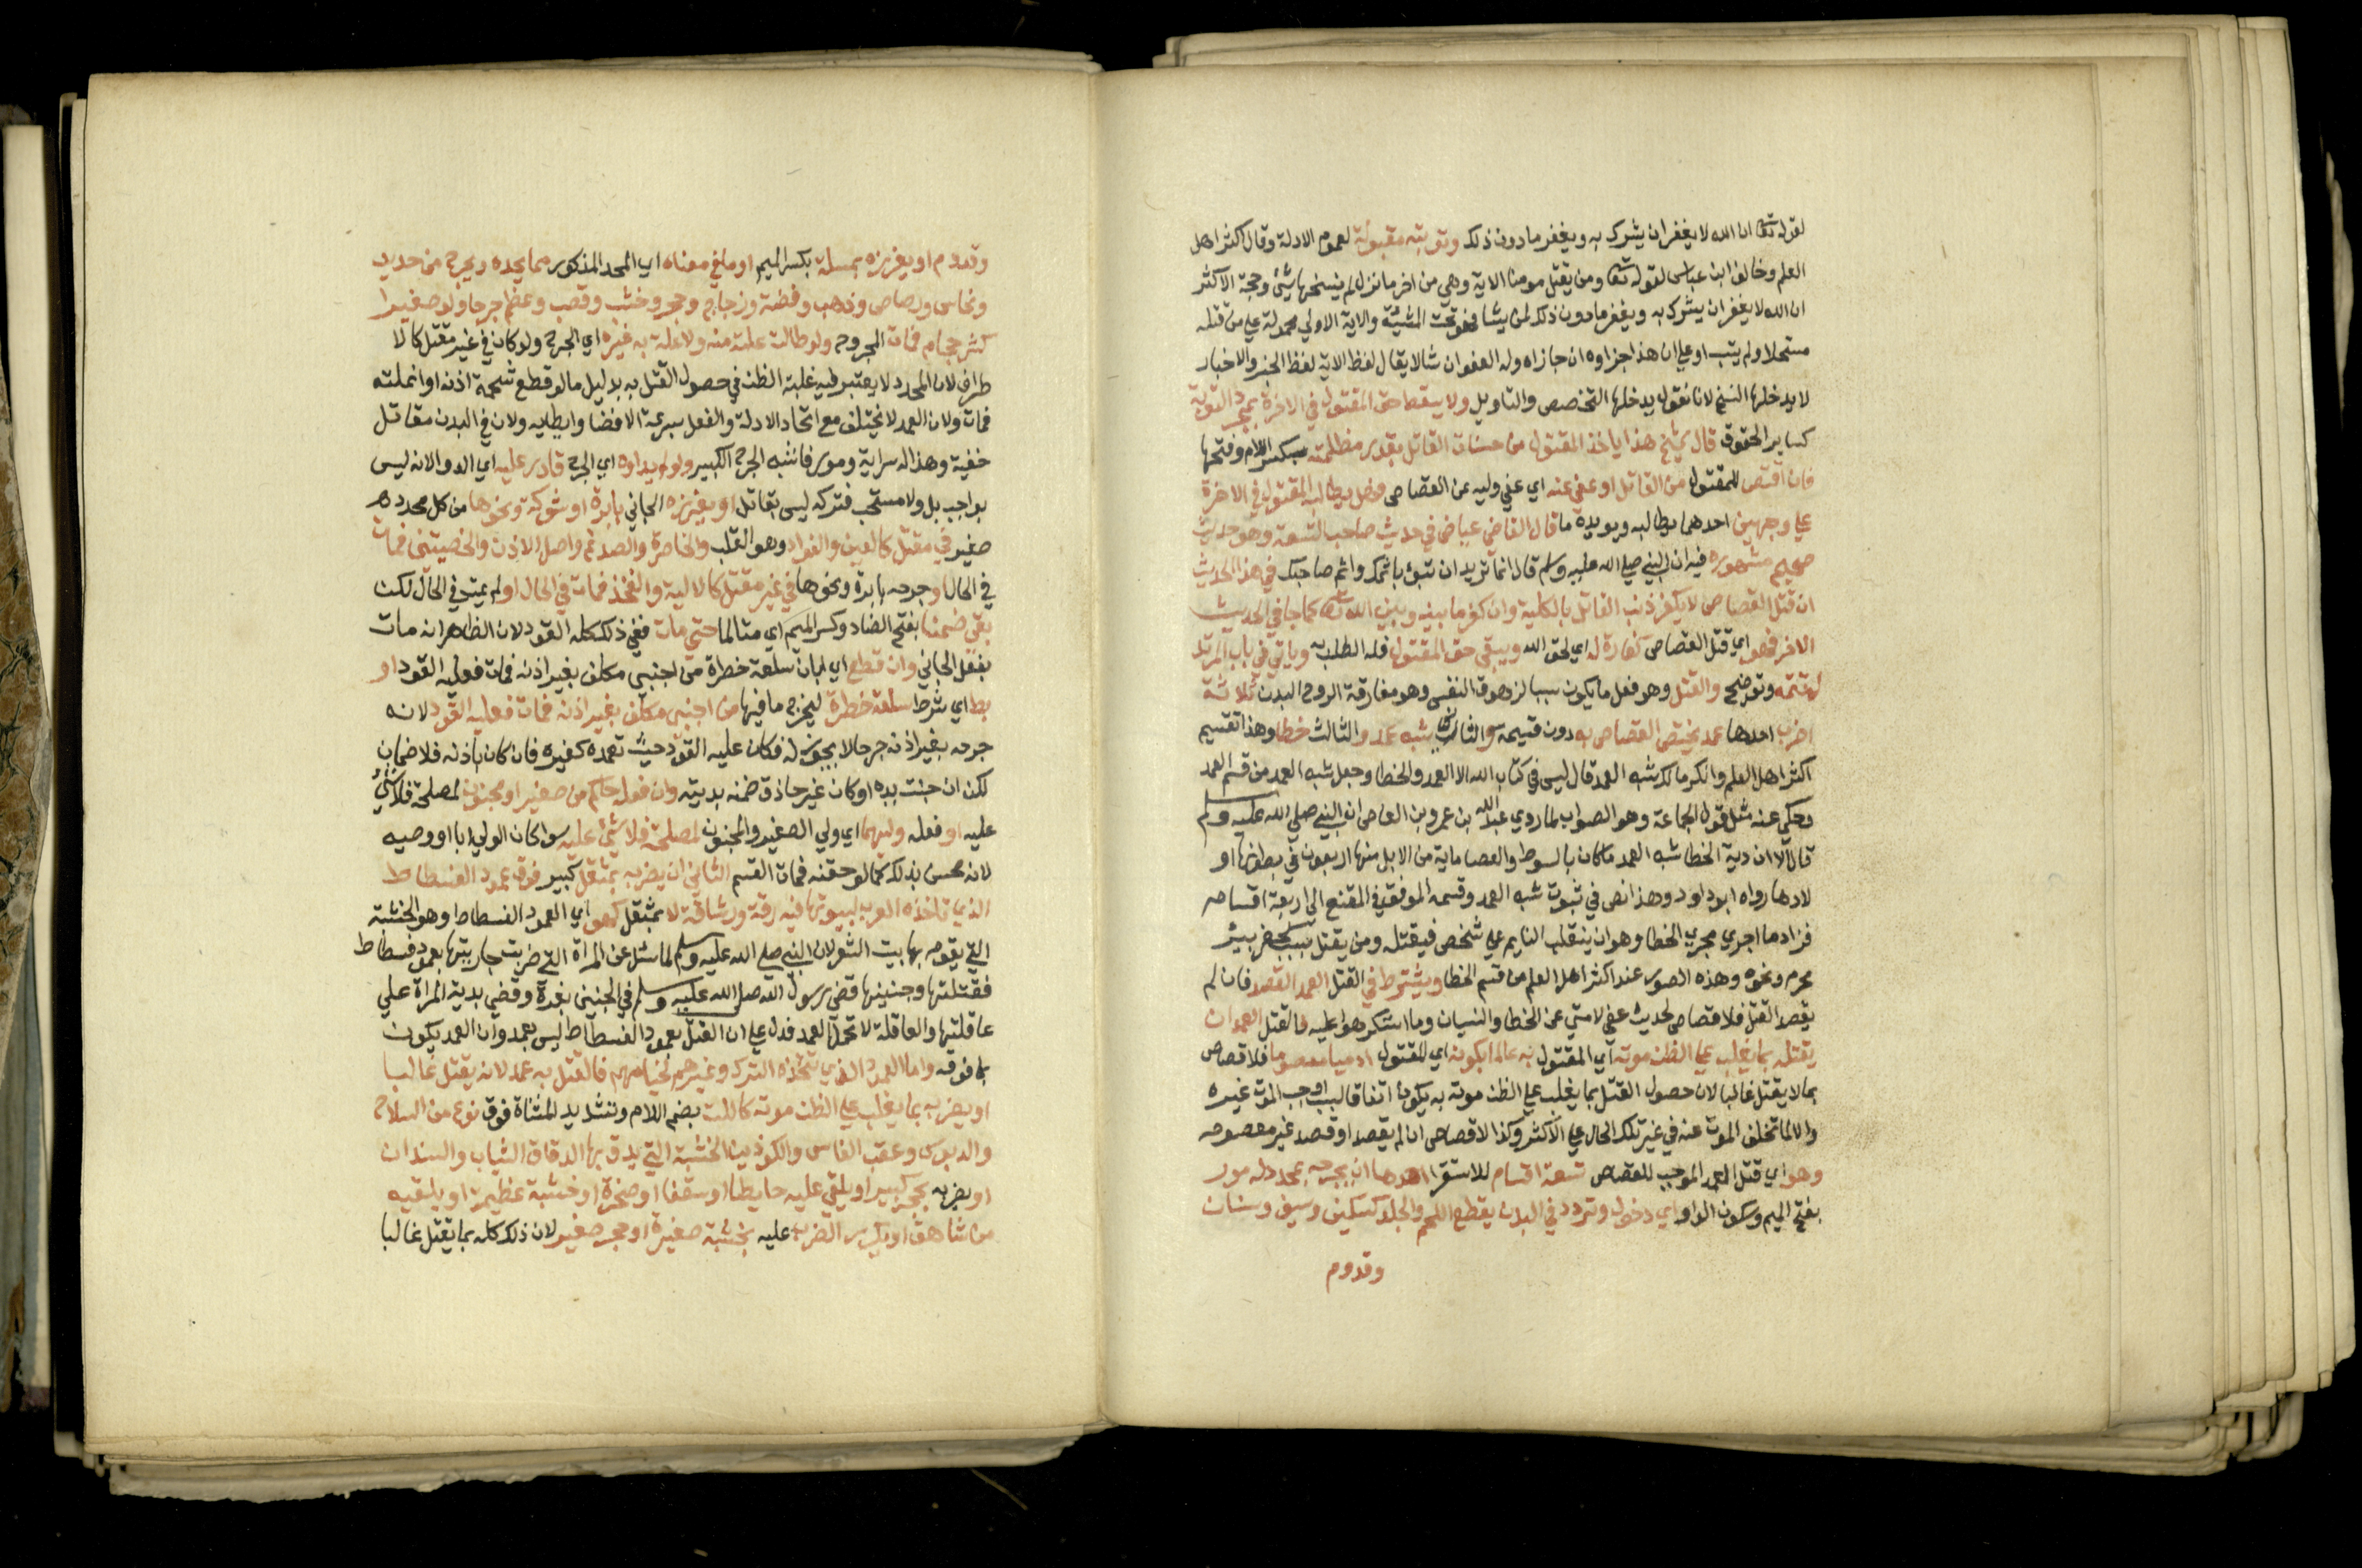 لقوله تعا ان الله لا يغفر ان يشرك به ويغفر مادون ذلك وتوبته مقبولة لعموم الادلة وقال اكثر اهل
العلم وخالف ابن عباس لقوله تعا ومن يقتل مومنا الاية وهي من اخر ما نزل لم ينسخها شيئ وحجة الاكثر
ان الله لا يغفر ان يشرك به ويغفر مادون ذلك لمن يشا فهو تحت المشيئة والاية الاولي محمولة علي من قتله
مستحلا ولم يتب او علي ان هذا جزاوه ان جازاه وله العفو ان شا لا يقال لفظ الاية لفظ الخبر والاخبار
لا يدخلها النسخ لانا نقول يدخلها التخصيص والتاويل ولا يسقط حق المقتول في الاخرة بمجرد التوبة
كساير الحقوق قال الشيخ هذا ياخذ المقتول من حسنات القاتل بقدر مظلمته بكسر اللام وفتحها
فان اقتص للمقتول من القاتل او عفي عنه اي عفي وليه عن القصاص فهل يطالبه المقتول في الاخرة
علي وجهين احدهما يطالبه ويويده ما قال القاضي عياض في حديث صاحب النسعة وهو حديث
صحيح مشهور فيه ان النبي صلي الله عليه وسلم قال اما تريد ان تبوء باثمك واثم صاحبك في هذا الحديث
ان قتل القصاص لا يكفر ذنب القاتل بالكلية وان كفر ما بينه وبين الله تعا كما جا في الحديث
الاخر فهو اي قتل القصاص كفارة له اي لحق الله ويبقي حق المقتول فله الطلب به وياتي في باب المرتد
له تتمة وتوضيح والقتل وهو فعل ما يكون سببا لزهوق النفس وهو مفارقة الروح البدن ثلاثة
اضرب احدها عمد يختص القصاص به دون قسيميه والثاني شبه عمد والثالث خطا وهذا تقسيم
اكثر اهل العلم وانكر مالك شبه العمد قال ليس في كتاب الله الا العمد والخطا وجعل شبه العمد من قسم العمد
وحكي عنه مثل قول الجماعة وهو الصواب لما روي عبد الله بن عمرو بن العاص ان النبي صلي الله عليه وسلم
قال الا ان دية الخطا شبه العمد ما كان بالسوط والعصا ماية من الابل منها اربعون في بطونها او
لادها رواه ابو داود وهذا نص في ثبوت شبه العمد وقسمه الموفق في المقنع الي اربعة اقسام
فزاد ما اجري مجري الخطا وهو ان ينقلب النايم علي شخص فيقتله ومن يقتل بسبب كحفر بير
محرم ونحوه وهذه الصور عند اكثر اهل العلم من قسم الخطا ويشترط في القتل العمد القصد فان لم
يقصد القتل فلا قصاص لحديث عفي لامتي عن الخطا والنسيان وما استكرهوا عليه فالقتل العمد ان
يقتله بما يغلب علي الظن موته اي المقتول به عالما بكونه اي المقتول ادميا معصوما فلا قصاص
بما لا يقتل غالبا لان حصول القتل بما يغلب علي الظن موته به يكون اتفاقا لسبب اوجب الموت غيره
والا لما تخلف الموت عنه في غير تلك الحال علي الاكثر وكذا لا قصاص ان لم يقصد او قصد غير معصوم
وهو اي قتل العمد الموجب للقصاص تسعة اقسام للاستقرا احدها ان يجرحه بمحدد له مور
بفتح الميم وسكون الواو اي دخول وتردد في البدن يقطع اللحم والجلد كسكين وسيف وسنان
وقدوم
وقدوم او يغرزه بمسلة بكسر الميم او ما في معناه اي المحدد المذكور مما يحدد ويجرح من حديد
ونحاس ورصاص وذهب وفضة وزجاج وحجر وخشب وقصب وعظم جرحا ولو صغيرا
كشرط حجام فمات المجروح ولو طالت علته منه ولا علة به غيره اي الجرح ولو كان في غير مقتل كالا
طراف لان المحدد لا يعتبر فيه غلبة الظن في حصول القتل به بدليل ما لو قطع شحمة اذنه او انملته
فمات ولان العمد لا يختلف مع اتحاد الادلة والفعل بسرعة الافضا وابطايه ولان في البدن مقاتل
خفية وهذا له سراية ومور فاشبه الجرح الكبير ولو لم يداوه اي الجرح قادر عليه اي الدوا لانه ليس
بواجب بل ولا مستحب فتركه ليس بقاتل او يغرزه الجاني بابرة او شوكة ونحوها من كل محدد
صغير في مقتل كالعين والفواد وهو القلب والخاصرة والصدغ واصل الاذن والخصيتين فمات
في الحال او جرحه بابرة ونحوها في غير مقتل كالالية والفخذ فمات في الحال او لم يمت في الحال لكن
بقي ضمنا بفتح الضاد وكسر الميم اي متالما حتي مات ففي ذلك كله القود لان الظاهر انه مات
بفعل الجاني وان قطع اي ابان سلعة خطرة من اجنبي مكلف بغير اذنه فمات فعليه القود او
بط اي شرط سلعة خطرة ليخرج ما فيها من اجنبي مكلف بغير اذنه فمات فعليه القود لانه
جرحه بغير اذنه جرحا لا يجوز له فكان عليه القود حيث تعمده كغيره فان كان باذنه فلا ضمان
لكن ان جنت يده او كان غير حاذق ضمنه بديته وان فعله حاكم من صغير او مجنون لمصلحة فلا شيئ
عليه او فعله وليهما اي ولي الصغير والمجنون لمصلحة فلا شيئ عليه سوا كان الولي ابا او وصيه
لانه محسن بذلك كما لو حقنه فمات القسم الثاني ان يضربه بمثقل كبير فوق عمود الفسطاط
الذي تتخذه العرب لبيوتها فيه رقة ورشاقة لا بمثقل كهو اي العمود الفسطاط وهو الخشبة
التي يقوم بها بيت الشعر لان النبي صلي الله عليه وسلم لما سئل عن المراة التي ضربت جاريتها بعمود فسطاط
فقتلتها وجنينها قضي رسول الله صلي الله عليه وسلم في الجنين بغرة وقضي بدية المراة علي
عاقلتها والعاقلة لا تحمل العمد فدل علي ان القتل بعمود الفسطاط ليس بعمد وان العمد يكون
بما فوقه واما العمود الذي تتخذه الترك وغيرهم لخيامهم فالقتل به عمد لانه يقتل غالبا
او يضربه بما يغلب علي الظن موته كاللت بضم اللام وتشديد المثناة فوق نوع من السلاح
والدبوس وعقب الفاس والكوذين الخشبة التي يدق بها الدقاق الثياب والسندان
او يضربه بحجر كبير او يلقي عليه حايطا او سقفا او صخرة او خشبة عظيمة او يلقيه
من شاهق او يكرر الضرب عليه بخشبة صغيرة او حجر صغير لان ذلك كله مما يقتل غالبا